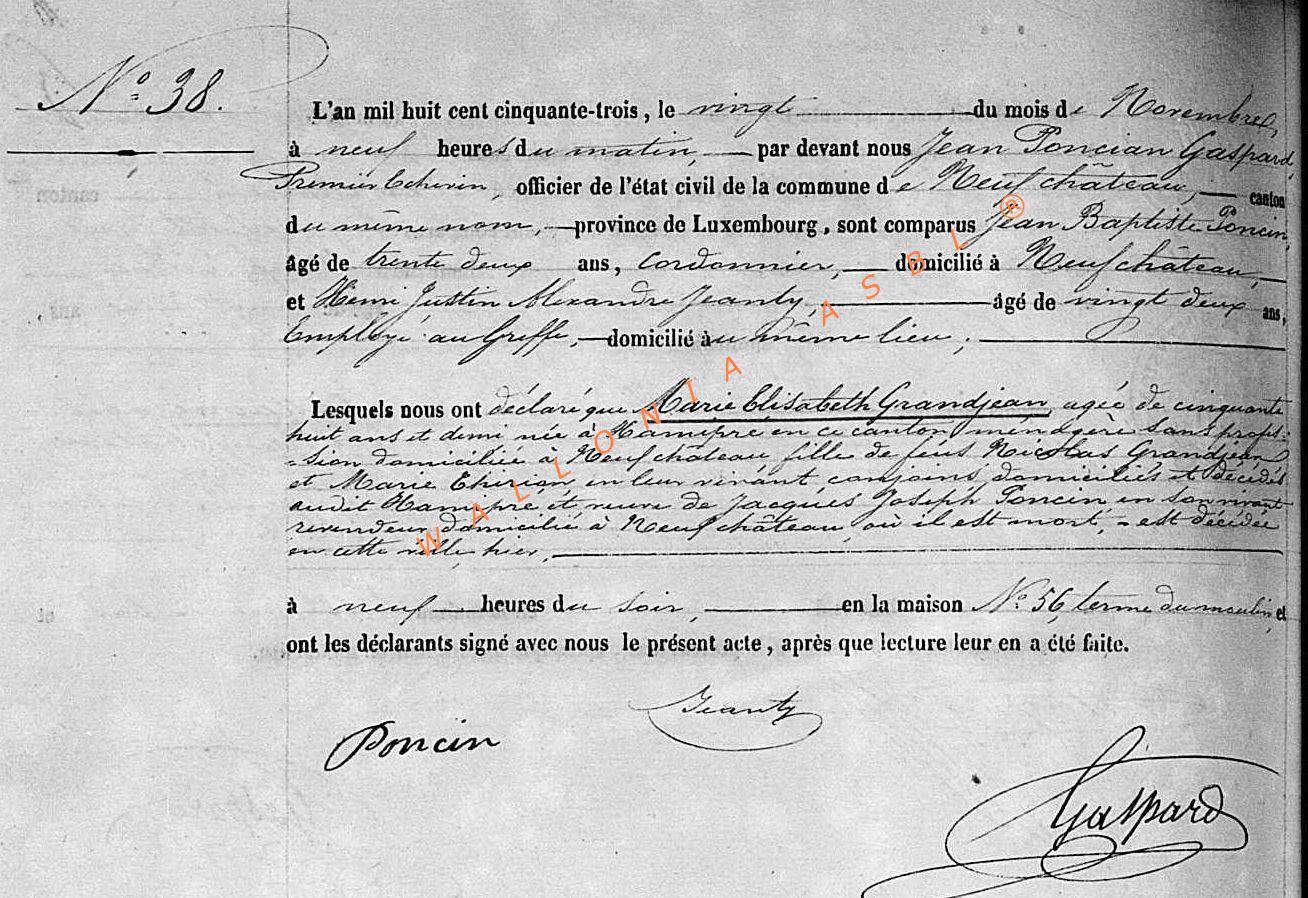 N° 38.
L'an mil huit cent cinquante-trois, le vingt du mois de Novembre,
à neuf heures du matin, par devant nous Jean Poncian Gaspard,
Premier Echevin, officier de l'état civil de la commune de Neufchâteau, canton
du même nom, province de Luxembourg, sont comparus Jean Baptiste Poncin,
âgé de trente deux ans, cordonnier, domicilié à Neufchâteau,
et Henri Justin Alexandre Jeanty, âgé de vingt deux ans,
Employé au Greffe, domicilié au même lieu;
Lesquels nous ont déclaré que Marie Elisabeth Grandjean, agée de cinquante
huit ans et demi née à Hamipré en ce canton, ménagère sans profes=
=sion domiciliée à Neufchâteau fille de feus Nicolas Grandjean
et Marie Thirion, en leur vivant, conjoins, domiciliés et décédés
audit Hamipré, et veuve de Jacques Joseph Poncin, en son vivant
revendeur domicilié à Neufchâteau, où il est mort, - est décédée
en cette ville, hier,
à neuf heures du soir, en la maison N° 56, terme du moulin, et
ont les déclarants signé avec nous le présent acte, après que lecture leur en a été faite.
Jeanty
Poncin
Gaspard
WALLONIA ASBL ®